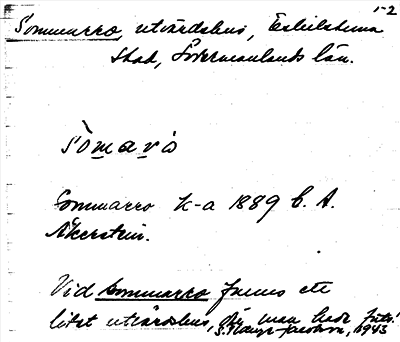 1-2
Sommarro, utvärdshus, Eskilstuna
stad, Södermanlands län.
Sòmarò
Sommarro k-a 1889 C. A.
Åkerstein.
Vid Sommarro fanns ett
litet utvärdshus, där man hade
1943